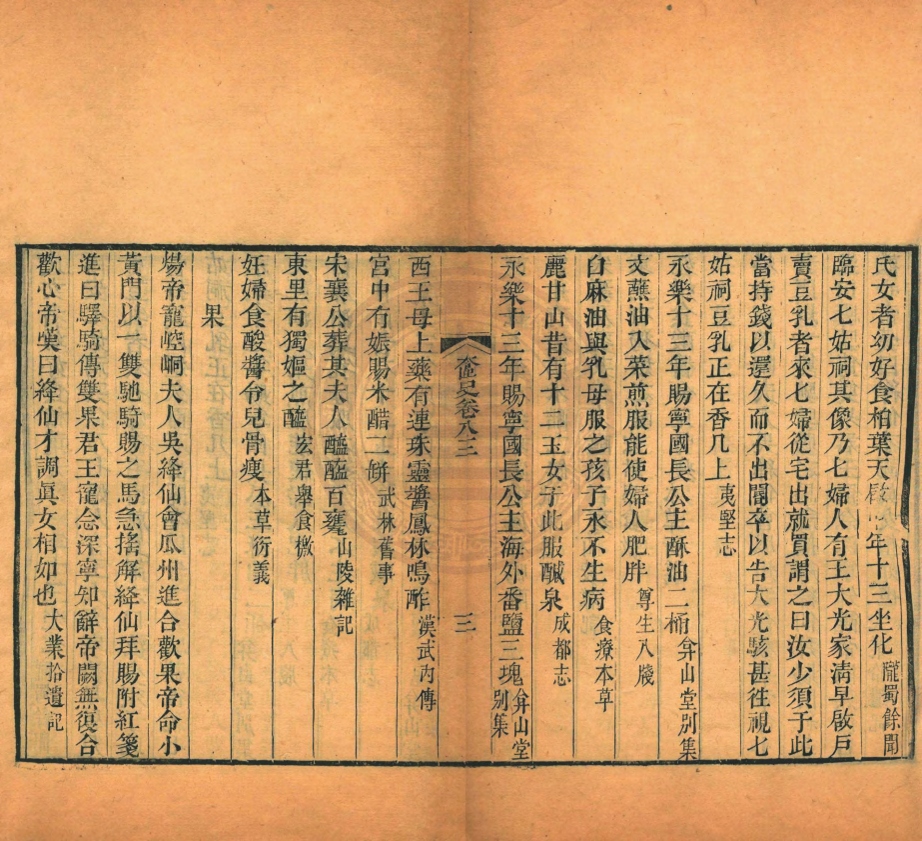 氏女者幼好食柏葉天啟 年年十三坐化隴蜀餘聞
臨安七姑祠其像乃七婦人有王大光家清早啟戸
賣豆乳者來七婦從宅出就買謂之曰汝少須于此
當持錢以還久而不出閽卒以告大光駭甚徃視七
姑祠豆乳正在香几上夷堅志
永樂十三年賜寧國長公主酥油二桶弇山堂別集
文蘸油入菜煎服能使婦人肥胖尊生八牋
白麻油與乳母服之孩子永不生病食療本草
麗甘山昔有十二玉女于此服醎泉成都志
永樂十三年賜寧國長公主海外番鹽三塊弇山堂別集
奩史卷八三
三
西王母上藥有連珠靈醬鳳林鳴酢漢武內傳
宮中有娠賜米醋二缾武林舊事
宋襄公葬其夫人醯醢百甕山陵雜記
東里有獨嫗之醢宏君舉食檄
妊婦食酸醬令兒骨瘦本草衍義
果
煬帝寵崆峒夫人吳絳仙會瓜州進合歡果帝命小
黃門以一雙馳騎賜之馬急搖解絳仙拜賜附紅箋
進曰驛騎傳雙果君王寵念深寧知辭帝闕無復合
歡心帝嘆曰絳仙才調眞女相如也大業拾遺記